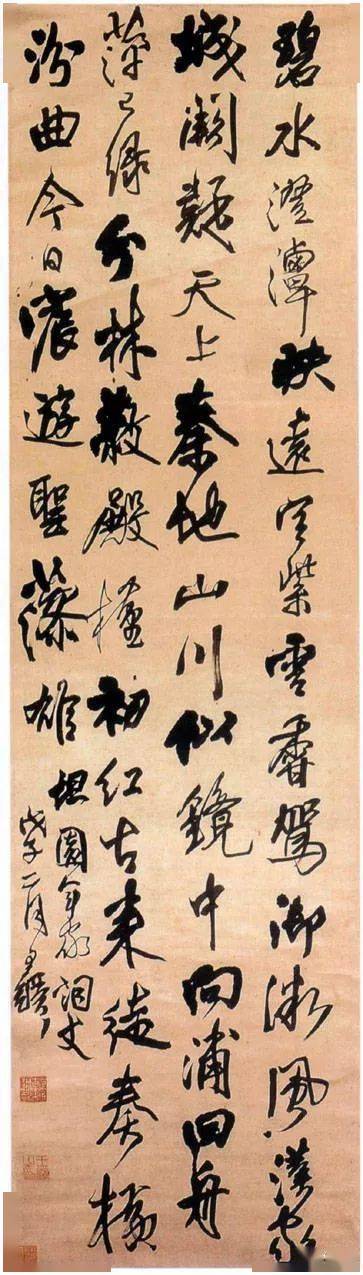 碧水澄潭映遠空紫雲香駕御微風漢家
城闕疑天上秦地山川似鏡中向浦回舟
萍已綠分林蔽殿槿初紅古來徒奏橫
汾曲今日宸遊聖藻雄坦園年家詞丈
戊子二月王鐸